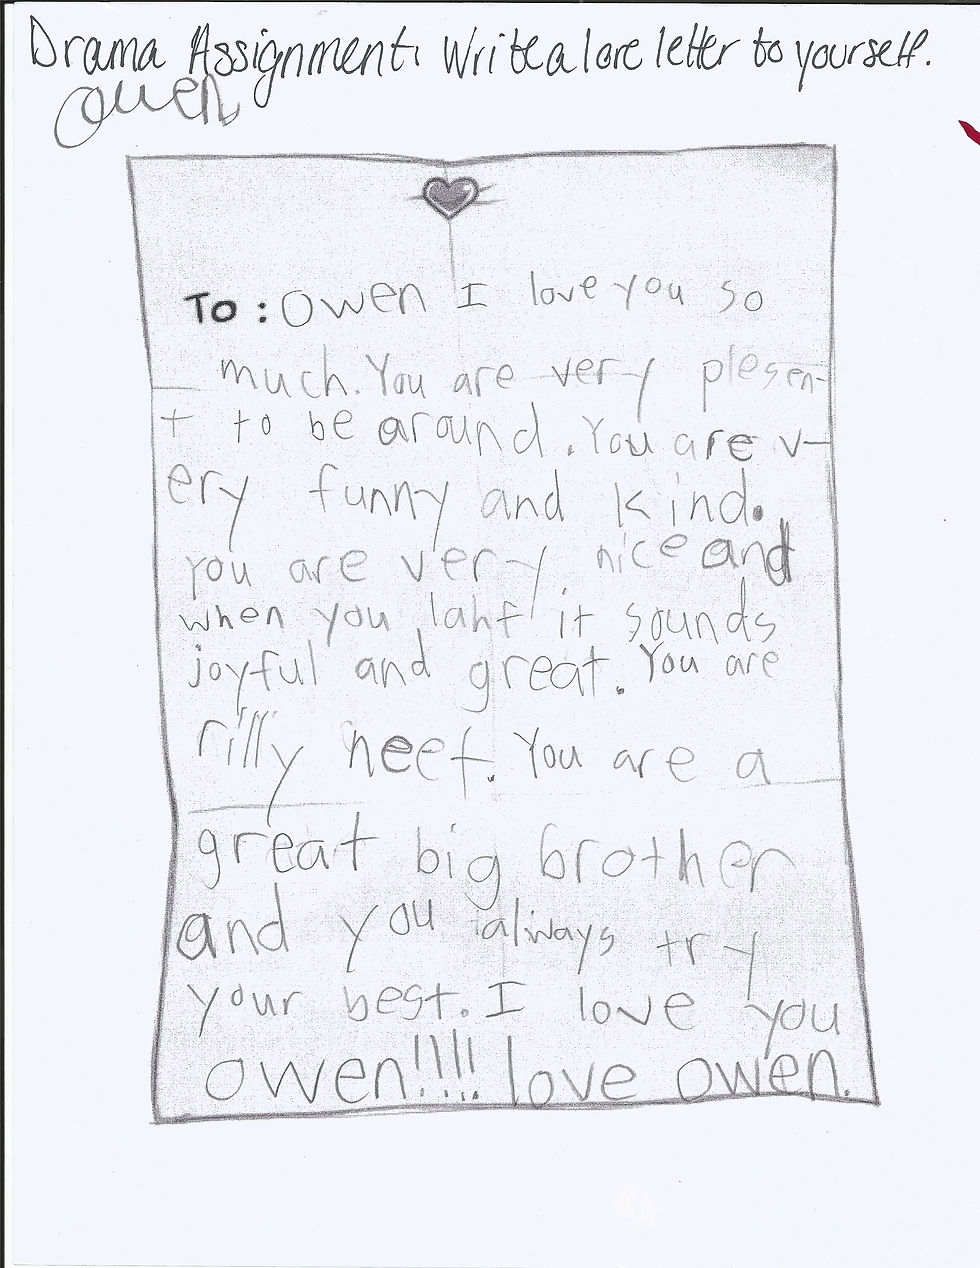 Drama Assignment: Write a love letter to yourself.
Owen
To: Owen I love you so
much. You are very plesen-
t to be around. You are v-
ery funny and kind.
you are very nice and
when you lahf it sounds
joyful and great. You are
rilly neet. You are a
great big brother
and you always try
your best. I love you
owen!!!! love owen.